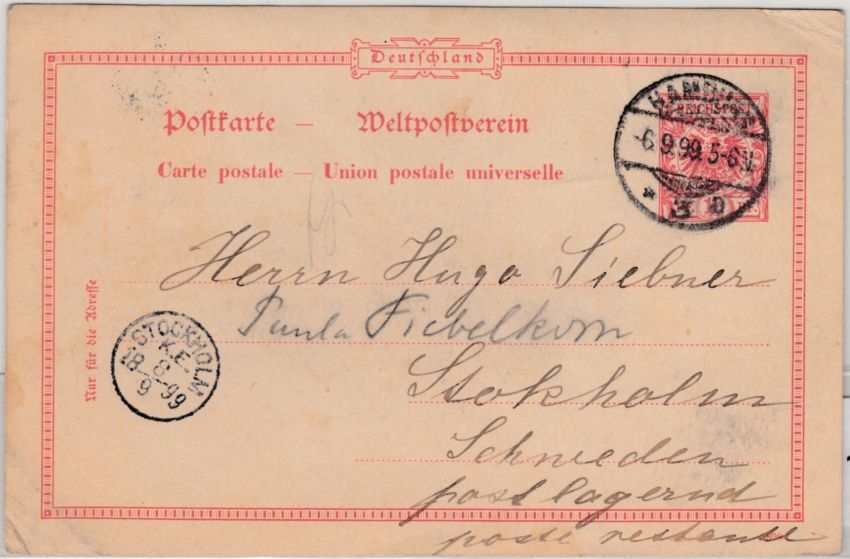 Deutschland
Postkarte — Weltpostverein
Carte postale — Union postale universelle
HAMBURG
REICHSPOST
-6.9.99. 5-6 V.
* 3 D
Herrn Hugo Siebner
Paula Fiebelkorn
Stokholm
Schweden
postlagernd
poste restante
Nur für die Adresse
STOCKHOLM
K.E.
18 8/9 99